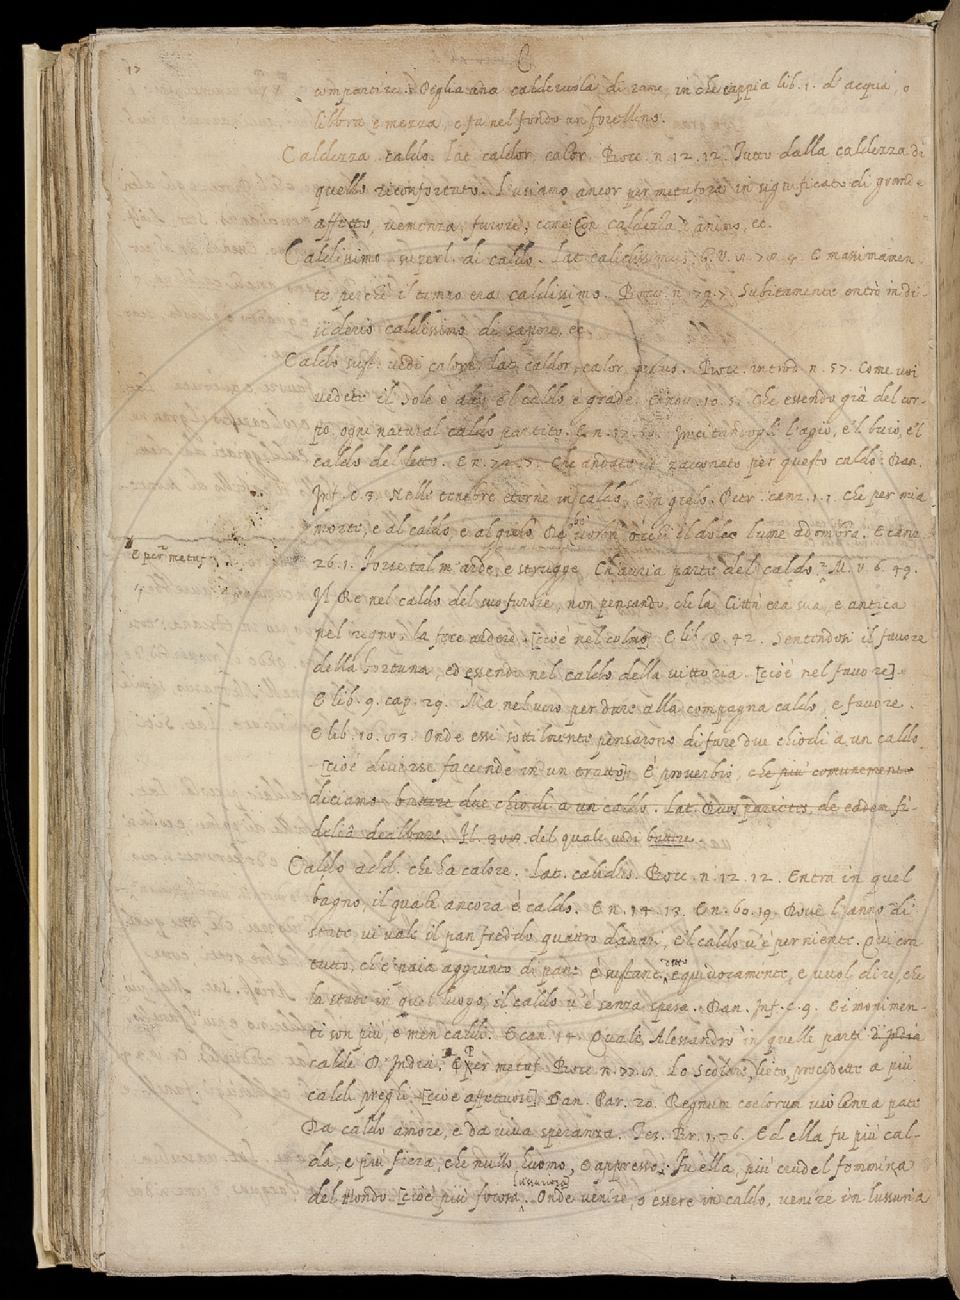 C
compartire. Piglia una calderuola di rame, in che cappia lib. 1. d' acqua, o
libbra e mezza, e fa nel fondo un forellino.
Caldezza caldo. Lat caldor, calor. Bocc. n. 12. 12. Tutto dalla caldezza di
quello riconfortato. L'usiamo ancor per metafora in significato di grande
affetto, vemenza, furore; come Con caldezza d' animo, ec.
Caldissimo superl. di caldo. Lat. calidissimus. G. V. E massimamen-
te perchè il tempo era caldissimo. Bocc. n. 79. 7. Subitamente entrò in di-
siderio caldissimo di sapere, ec.
Caldo sust. vedi calore. Lat. caldor, calor. Bocc. introd. n. 57. Come voi
vedete il Sole è alto e'l caldo è grande. E nov. 10. 5. Che essendo già del cor-
po ogni natural caldo partito. E n. Incitandogli l'agio, e'l buio, e'l
caldo del letto. E n. Che andate per questo caldo. Dan.
Inf. c. 3. Nelle tenebre eterne in caldo, e'n gielo. Petr. canz. 1. 1. che per mia
morte, e al caldo, e al gielo lume ad ombra. E canz.
E per metaf.
26. 1. Forse tal m' arde, e strugge Ch'avria parte del caldo. M. V. 6. 49.
Il Re nel caldo del suo furore, non pensando, che la Città era sua, e antica
nel regno, la fece ardere. [cioè nel colmo] E lib. 8. 42. Sentendosi il favore
della fortuna, ed essendo nel caldo della vittoria. [cioè nel favore].
E lib. 9. cap. 29. Ma nel vero per dare alla compagna caldo, e favore.
E lib. 10. Onde essi sottilmente pensarono di fare due chiodi a un caldo
[cioè diverse faccende in un tratto] E proverbio, che più comunemente
diciamo battere due chiodi a un caldo. Lat. Duos parietes de eadem fi-
delia dealbare. Il del quale vedi battere
Caldo add. che ha calore. Lat. calidus. Bocc. n. 12. 12. Entra in quel
bagno il quale ancora è caldo. E n. 14. 13. E n. 60. 19. Dove l'anno di
state vi vale il pan freddo quattro danari, e'l caldo v'è per niente. Qui era
tutto, ch'e' paia aggiunto di pane è sustant. detto equivocamente, e vuol dire, che
la state in quel luogo, il caldo v'è senza spesa. Dan. Inf. c. 9. E i monimen-
ti son più, e men caldi. E can. 14. Quale Alessandro in quelle parti d'India
calde D' India. E per metaf. Bocc. n. 77. Lo Scolare lieto, procedette a più
caldi preghi. [cioè affettuosi] Dan. Par. 20. Regnum coelorum violenza pate
Da caldo amore, e da viva speranza. Tes. Br. 1. 26. Ed ella fu più cal-
da, e più fiera, che nullo huomo, E appresso. Fu ella, più crudel femmina
del Mondo. [cioè più focosa lussuriosa]. Onde venire, o essere in caldo, venire in lussuria